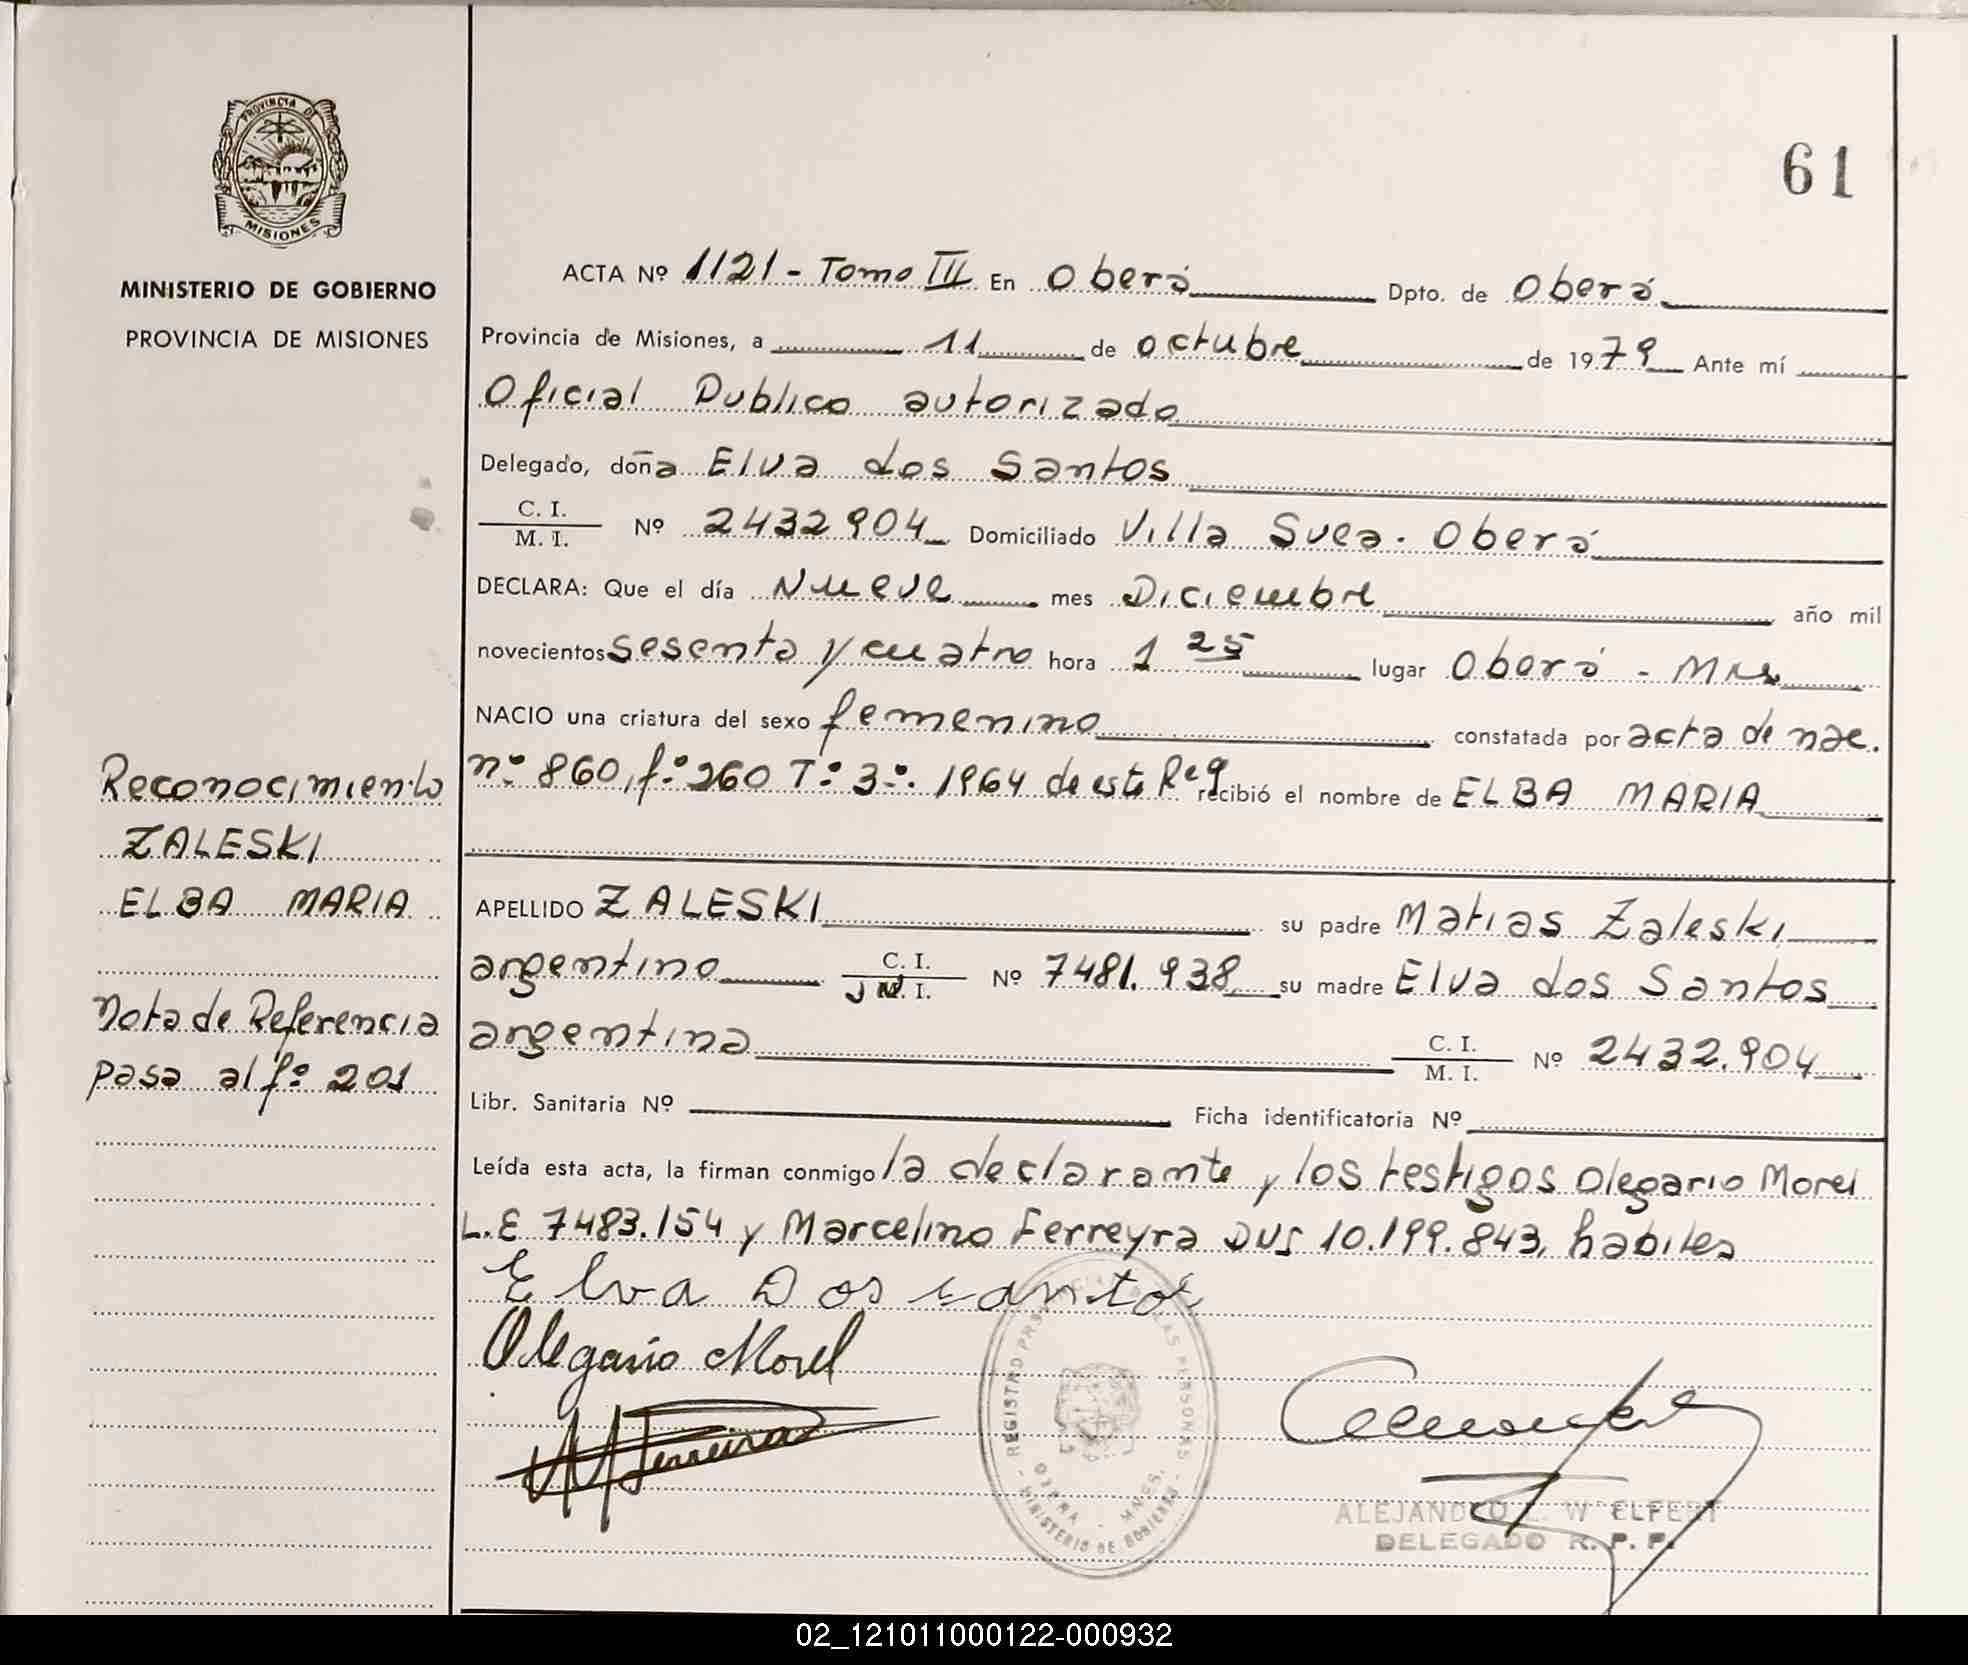 PROVINCIA DE
MISIONES
MINISTERIO DE GOBIERNO
PROVINCIA DE MISIONES
61
ACTA Nº 1121 - Tomo III En Oberá Dpto. de Oberá
Provincia de Misiones, a 11 de octubre de 1979 Ante mí
Oficial Publico autorizado
Delegado, doña Elva dos Santos
C. I.
M. I. Nº 2432904 Domiciliado Villa Svea. Oberá
DECLARA: Que el día Nueve mes Diciembre año mil
novecientos sesenta y cuatro hora 1 25 lugar Oberá - Mnes
NACIO una criatura del sexo femenino constatada por acta de nac.
nº 860, fº 260 Tº 3º. 1964 de este Reg recibió el nombre de ELBA MARIA
APELLIDO ZALESKI su padre Matias Zaleski
argentino C. I.
M. I. Nº 7481.938 su madre Elva dos Santos
argentina C. I.
M. I. Nº 2432.904
Libr. Sanitaria Nº Ficha identificatoria Nº
Leída esta acta, la firman conmigo la declarante y los testigos Olegario Morel
L.E 7483.154 y Marcelino Ferreyra DNI 10.199.843, habiles
Elva Dos santos
Olegario Morel
M Ferreira
Reconocimiento
ZALESKI
ELBA MARIA
Nota de Referencia
pasa al fº 201
REGISTRO PROVINCIAL DE LAS PERSONAS
OBERA - MNES.
MINISTERIO DE GOBIERNO
ALEJANDRO
DELEGADO R. P. P.
02_121011000122-000932